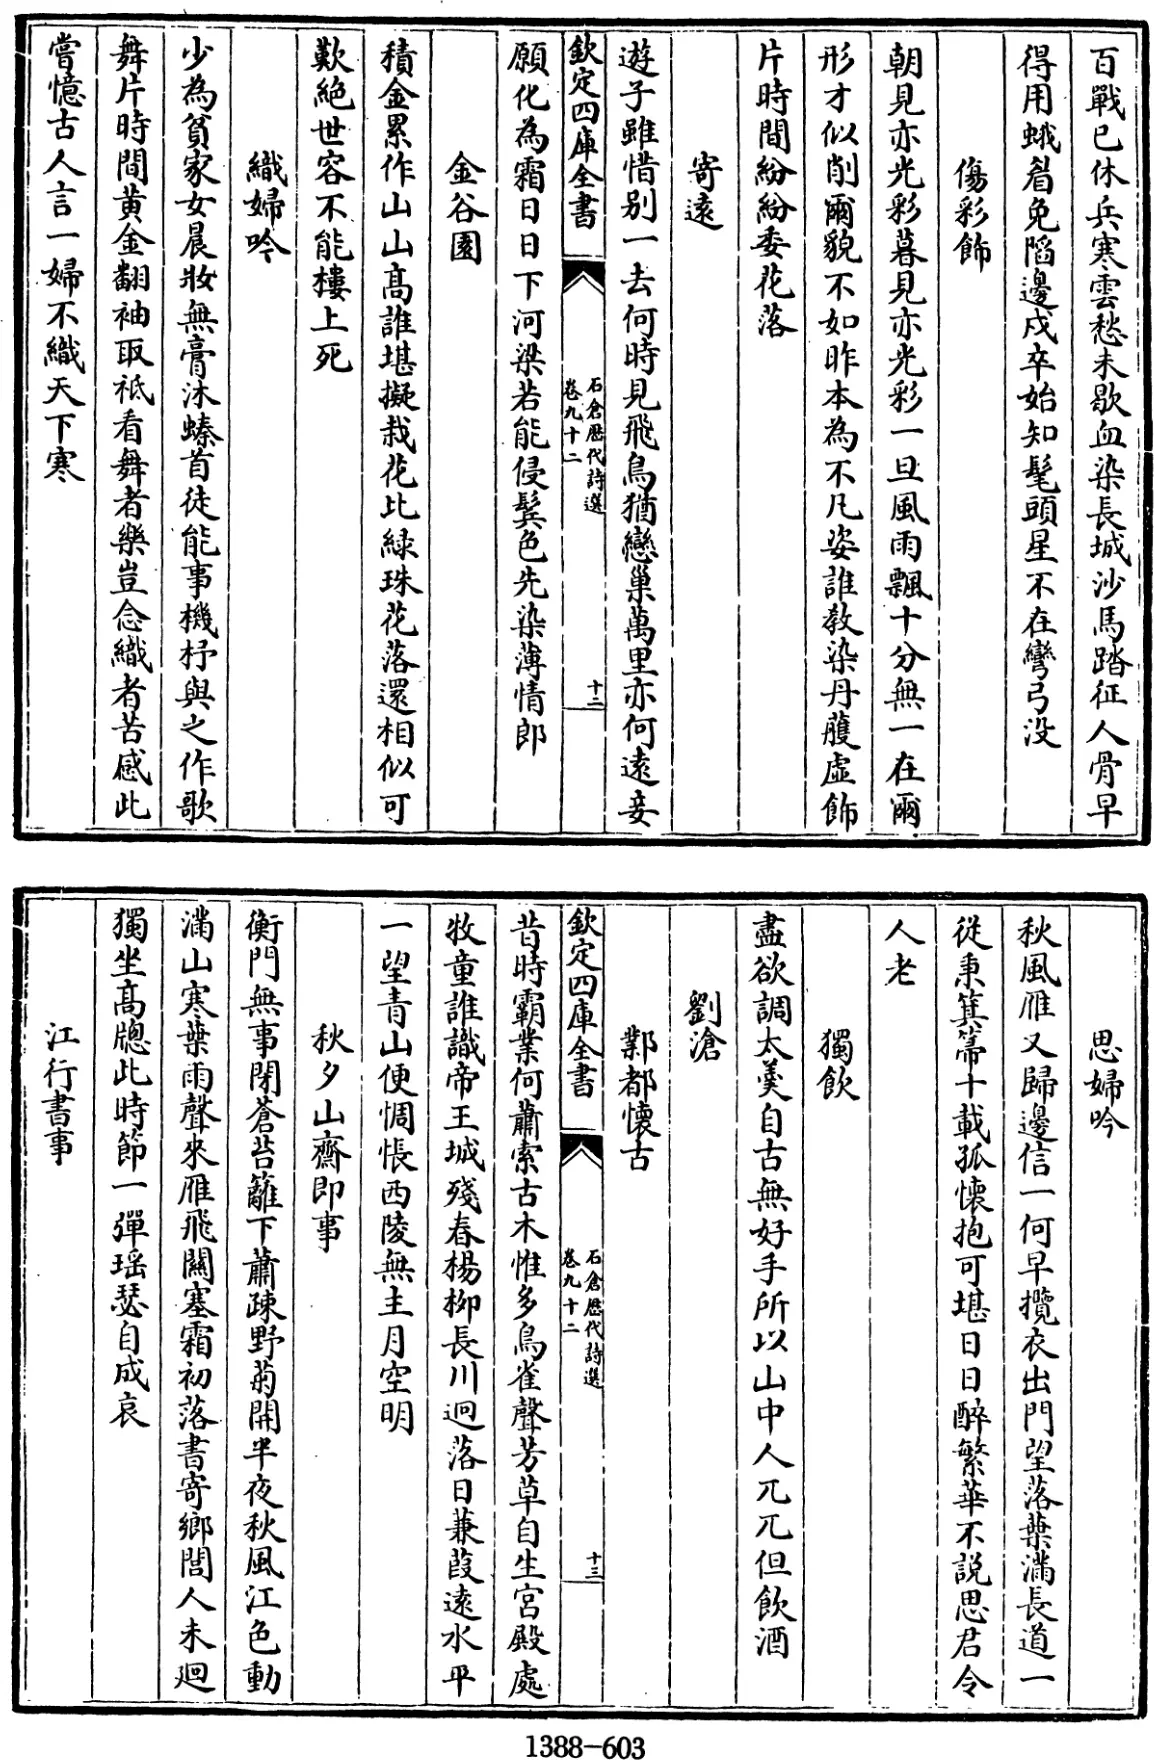 百戰已休兵寒雲愁未歇血染長城沙馬踏征人骨早
得用蛾眉免陷邊戍卒始知髦頭星不在彎弓沒
傷彩飾
朝見亦光彩暮見亦光彩一旦風雨飄十分無一在爾
形才似削爾貌不如昨本為不凡姿誰教染丹雘虛飾
片時間紛紛委花落
寄遠
遊子雖惜別一去何時見飛鳥猶戀巢萬里亦何遠妾
欽定四庫全書
石倉歷代詩選
卷九十二
十二
願化為霜日日下河梁若能侵鬓色先染薄情郎
金谷園
積金累作山山高誰堪擬栽花比綠珠花落還相似可
歎絕世容不能樓上死
織婦吟
少為貧家女晨妝無膏沐螓首徒能事機杼與之作歌
舞片時間黄金翻袖取祗看舞者樂豈念織者苦感此
嘗憶古人言一婦不織天下寒
思婦吟
秋風雁又歸邊信一何早攬衣出門望落葉滿長道一
從秉箕箒十載孤懷抱可堪日日醉繁華不説思君令
人老
獨飲
盡欲調太羮自古無好手所以山中人兀兀但飲酒
劉滄
鄴都懷古
欽定四庫全書
石倉歷代詩選
卷九十二
十三
昔時霸業何蕭索古木惟多鳥雀聲芳草自生宮殿處
牧童誰識帝王城殘春楊柳長川迥落日蒹葭遠水平
一望青山便惆悵西陵無主月空明
秋夕山齋即事
衡門無事閉蒼苔籬下蕭疎野菊開半夜秋風江色動
滿山寒葉雨聲來雁飛關塞霜初落書寄鄉閭人未廻
獨坐高牕此時節一彈瑶瑟自成哀
江行書事
1388-603